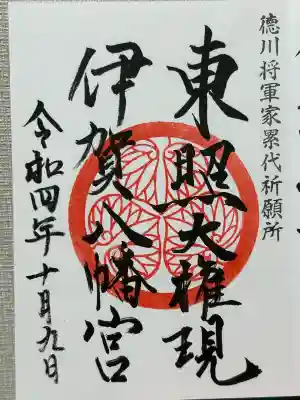 徳川将軍家累代祈願所
東照大権現
伊賀八幡宮
令和四年十月九日